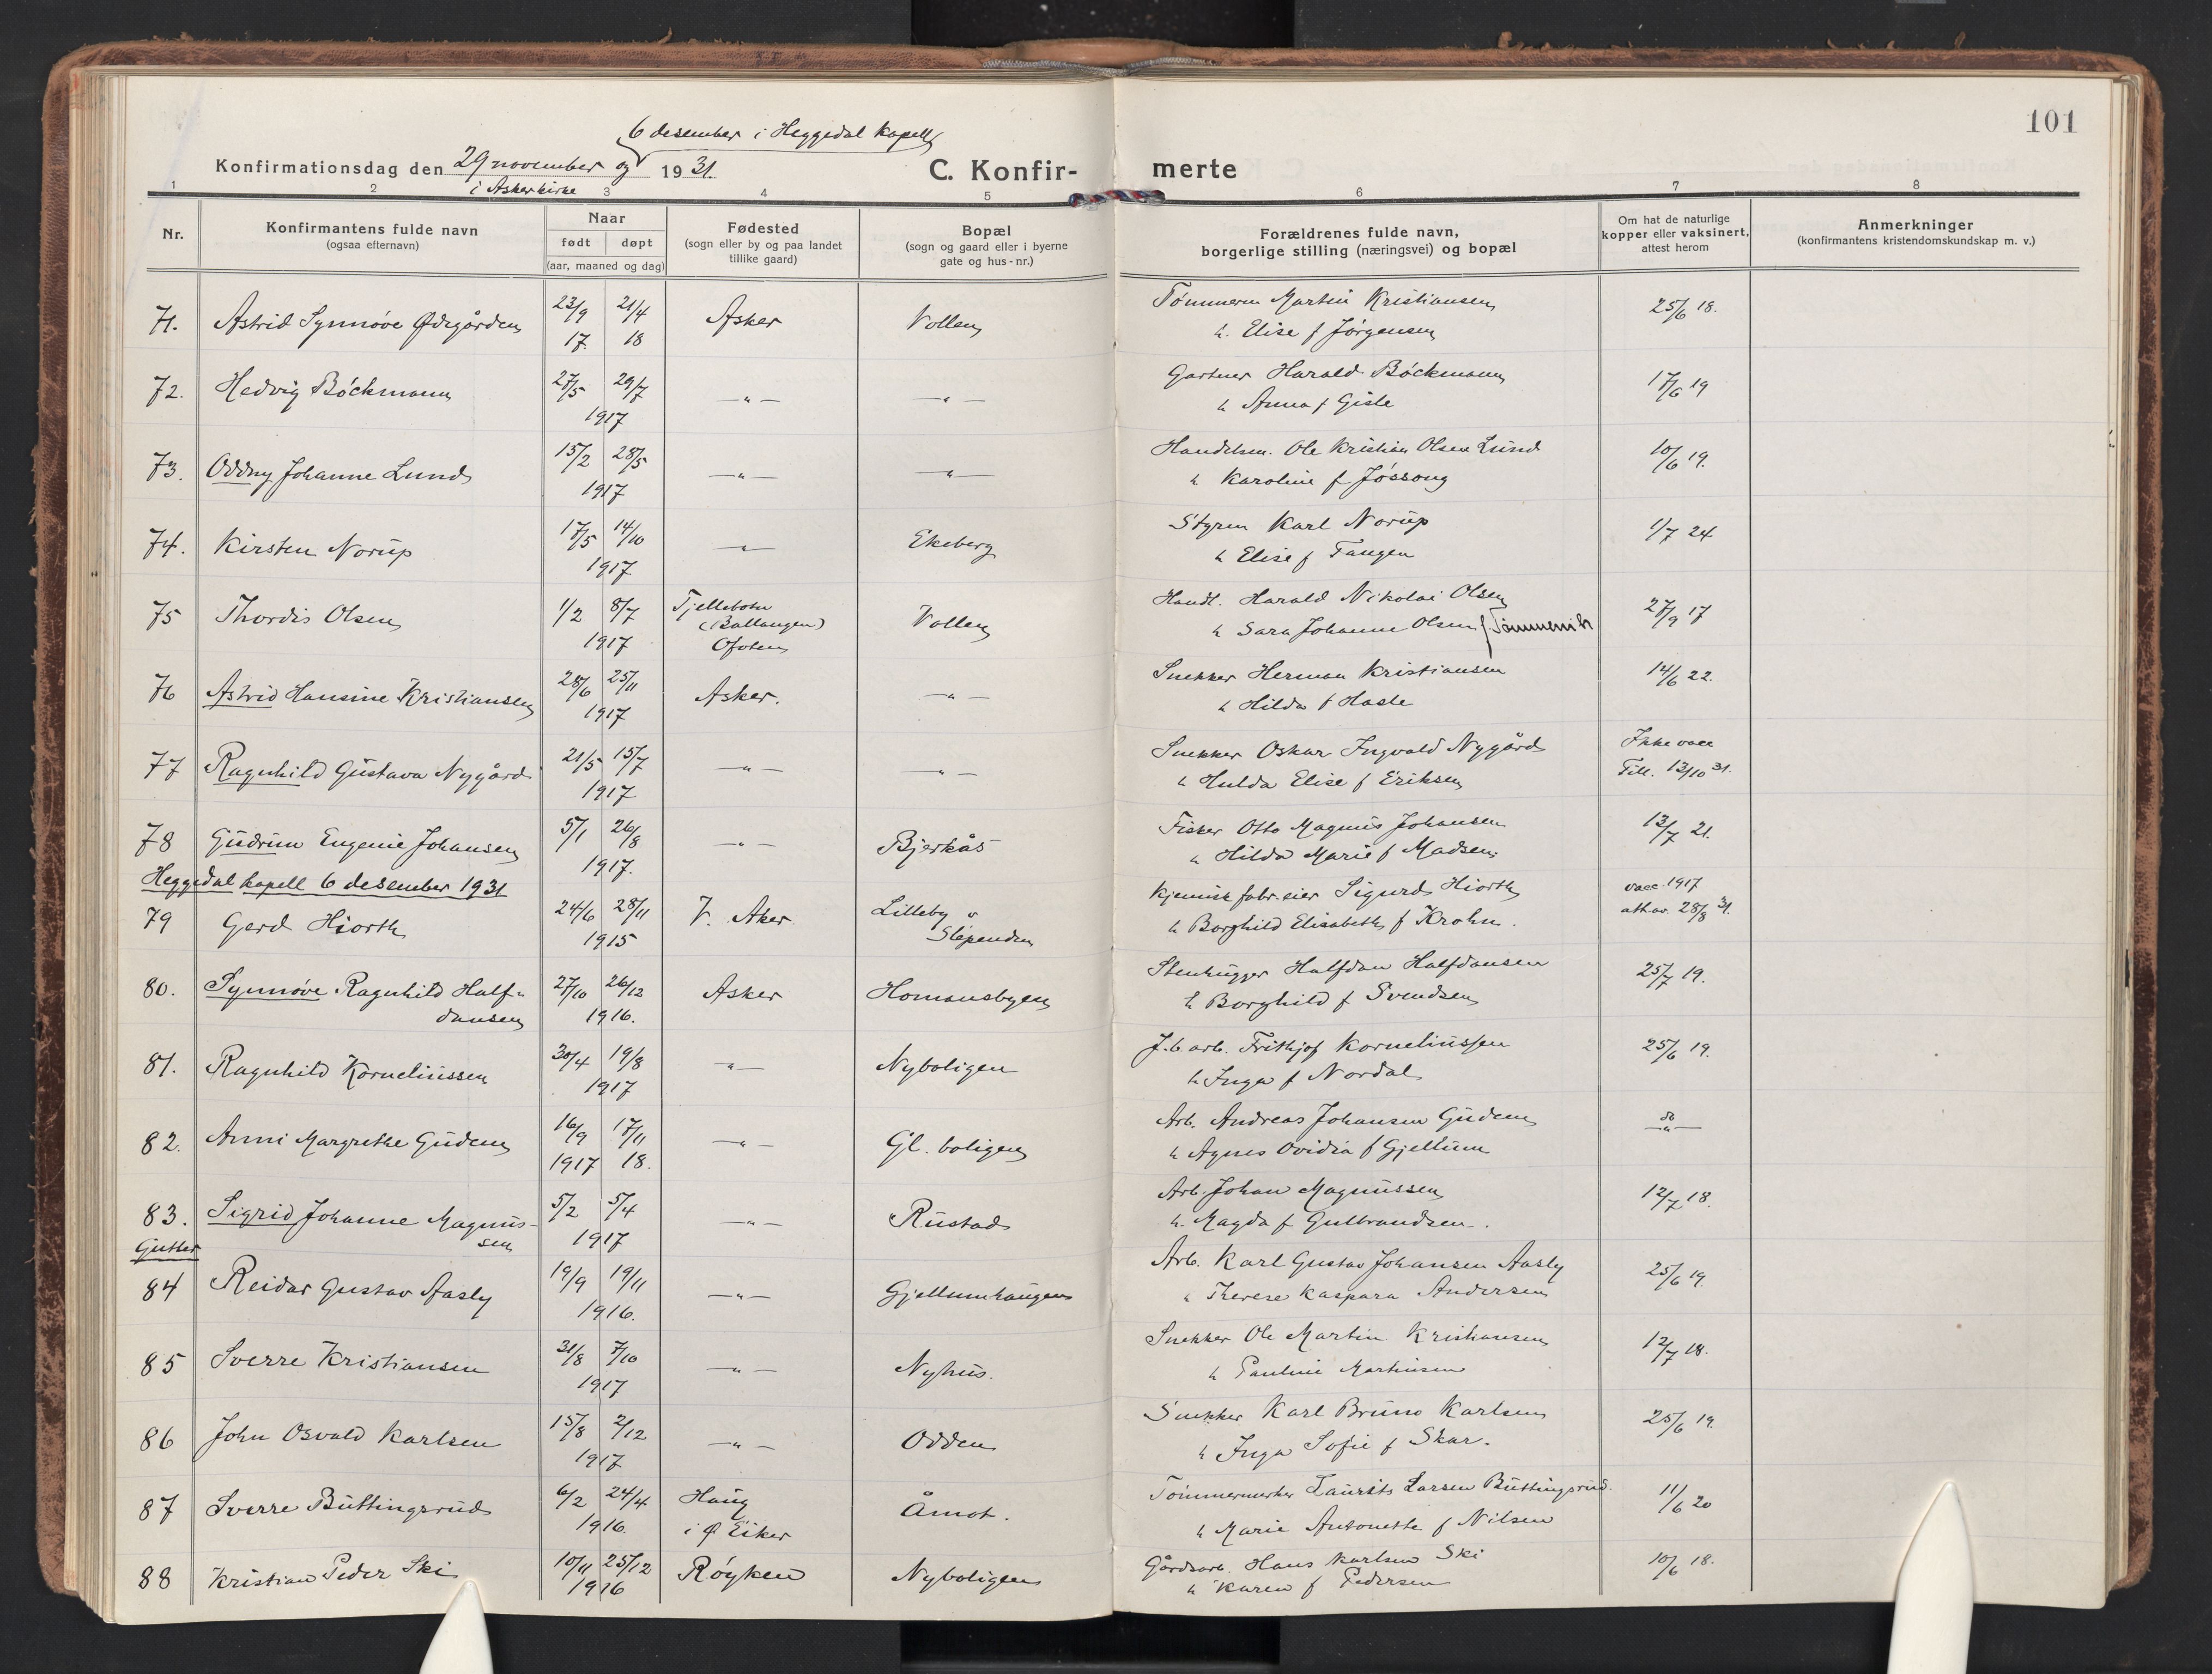 101
6 desember i Heggedal kapell
Konfirmationsdag den 29 november og 1931.
i Asker kirke
C. Konfir-merte
1 2 3 4 5 6 7 8
Nr.
Konfirmantens fulde navn
(ogsaa efternavn)
Naar
født døpt
(aar, maaned og dag)
Fødested
(sogn eller by og paa landet
tillike gaard)
Bopæl
(sogn og gaard eller i byerne
gate og hus-nr.)
Forældrenes fulde navn,
borgerlige stilling (næringsvei) og bopæl
Om hat de naturlige
kopper eller vaksinert,
attest herom
Anmerkninger
(konfirmantens kristendomskundskap m. v.)
71. Astrid Synnøve Ødegården 23/9 17. 21/4 18 Asker Vollen Tømmerm Martin Kristiansen 25/6 18.
h. Elise f Jørgensen
72. Hedvig Böckmann 27/5 29/7 1917 —"— —"— Gartner Harald Böckmann 17/6 19
h Anna f Gisle
73. Oddny Johanne Lund 15/2 28/5 1917 —"— —"— Handelsm. Ole Kristian Olsen Lund 10/6 19.
h Karoline f Jøssong
74. Kirsten Norup 17/5 14/10 1917 —"— Ekeberg Styrm Karl Norup 1/7 24
h Elise f Tangen
75 Thordis Olsen 1/2 8/7 1917 Tjellebotn (Ballangen) Ofoten Vollen Handl. Harald Nikolai Olsen 27/9 17
h Sara Johanne Olsen f.
76 Astrid Hansine Kristiansen 28/6 25/11 1917 Asker. —"— Snekker Herman Kristiansen 14/6 22.
h Hilda f Hasle
77 Ragnhild Gustava Nygård 21/5 15/7 1917 —"— —"— Snekker Oskar Ingvald Nygård Ikke vacc
h Hulda Elise f Eriksen Till. 13/10 31.
78 Gudrun Eugenie Johansen 5/1 26/8 1917. —"— Bjerkås Fisker Otto Magnus Johansen 13/7 21.
h Hilda Marie f Madsen.
Heggedal kapell 6 desember 1931
79 Gerd Hiorth 24/6 28/11 1915 V. Aker. Lilleby Slependen Kjemisk fabr.eier Sigurd Hiorth vacc. 1917
h Borghild Elisabeth f Krohn. att. av. 28/8 31.
80. Synnøve Ragnhild Half-
dansen 27/10 26/12 1916. Asker Homansbyen Stenhugger Halfdan Halfdansen 25/7 19.
h Borghild f Svendsen
81. Ragnhild Korneliussen 30/4 19/8 1917 —"— Nyboligen J.b arb. Frithjof Korneliussen 25/6 19.
h Inga f Nordal
82. Anni Margrethe Gudem 16/9 1917 17/11 18. —"— Gl. boligen Arb. Andreas Johansen Gudem do —"—
h Agnes Ovidia f Gjellum
83. Sigrid Johanne Magnus-
sen 5/2 5/4 1917 —"— Rustad Arb. Johan Magnussen 12/7 18.
h. Magda f Gulbrandsen.
Gutter
84 Reidar Gustav Aasly 19/9 19/11 1916. —"— Gjellumhaugen Arb. Karl Gustav Johansen Aasly 25/6 19.
" Therese Kaspara Andersen
85 Sverre Kristiansen 31/8 7/10 1917 —"— Nyhus. Snekker Ole Martin Kristiansen 12/7 18.
h Pauline Martinsen
86 John Osvald Karlsen 15/8 2/12 1917 —"— Odden Snekker Karl Bruno Karlsen 25/6 19.
h Inga Sofie f Skar.
87 Sverre Buttingsrud 6/2 24/4 1916. Haug i Ø Eiker Åmot. Tømmermerker Laurits Larsen Buttingsrud. 11/6 20
h Marie Antonette f Nilsen
88 Kristian Peder Ski 10/11 25/12 1916 Røyken Nyboligen Gårdsarb. Hans Karlsen Ski 10/6 18.
h Karen f Pedersen